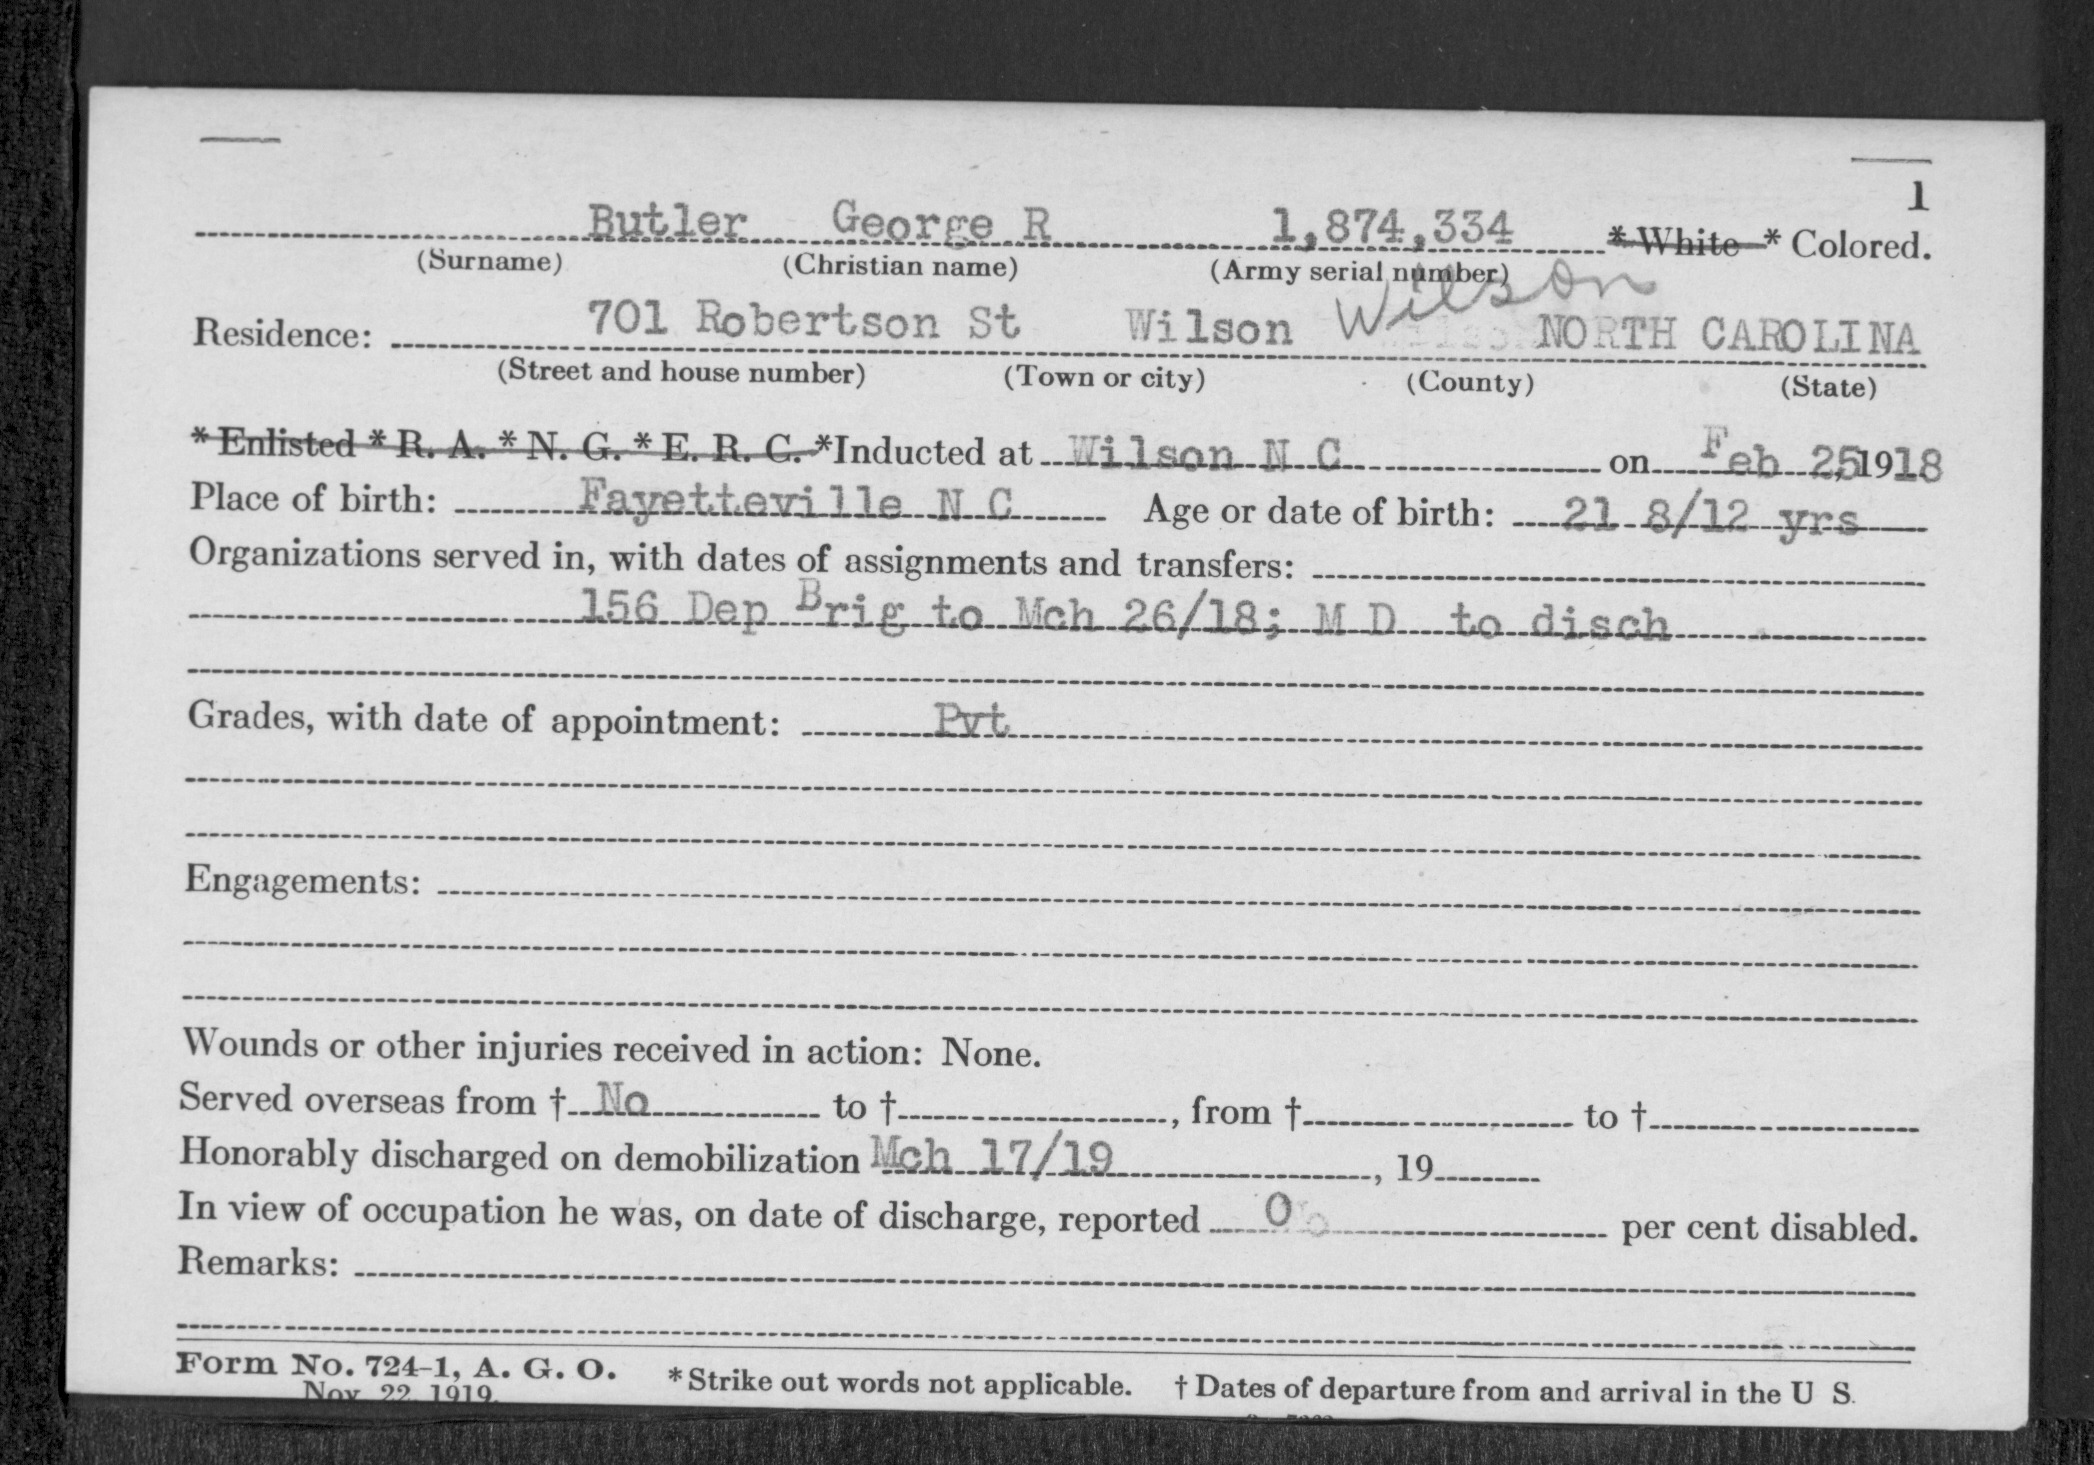 1
Butler George R 1,874,334 * White * Colored.
(Surname) (Christian name) (Army serial number)
Residence: 701 Robertson St Wilson Wilson NORTH CAROLINA
(Street and house number) (Town or city) (County) (State)
* Enlisted * R. A. * N. G. * E. R. C. *Inducted at Wilson N C on Feb 25, 1918
Place of birth: Fayetteville N C Age or date of birth: 21 8/12 yrs
Organizations served in, with dates of assignments and transfers:
156 Dep Brig to Mch 26/18; M D to disch
Grades, with date of appointment: Pvt
Engagements:
Wounds or other injuries received in action: None.
Served overseas from † No to †, from † to †
Honorably discharged on demobilization Mch 17/19, 19
In view of occupation he was, on date of discharge, reported 0 per cent disabled.
Remarks:
Form No. 724-1, A. G. O. * Strike out words not applicable. † Dates of departure from and arrival in the U S.
Nov. 22, 1919.